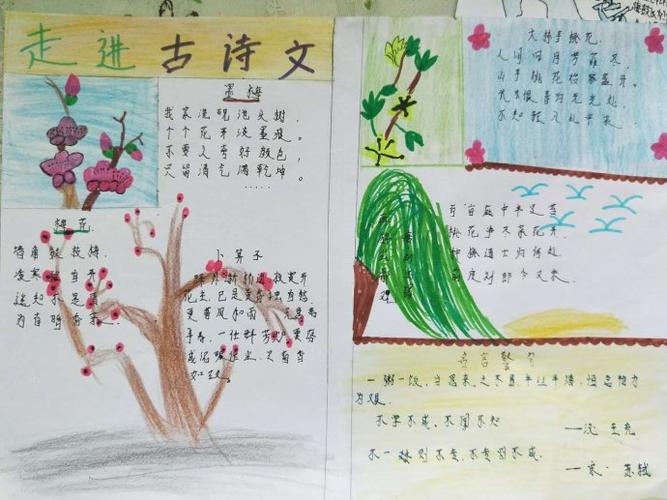 走进古诗文
墨梅
我家洗砚池头树，
个个花开淡墨痕。
不要人夸好颜色，
只留清气满乾坤。
梅花
墙角数枝梅，
凌寒独自开
遥知不是雪
为有暗香来。
卜算子
驿外断桥边，寂寞开
无主，已是黄昏独自愁，
更著风和雨，无意苦
争春，一任群芳妒，零落
成泥碾作尘，只有香
如故。
大林寺桃花
人间四月芳菲尽，
山寺桃花始盛开。
长恨春归无觅处，
不知转入此中来。
百亩庭中半是苔
桃花净尽菜花开
种桃道士归何处
前度刘郎今又来。
名言警句
一粥一饭，当思来之不易，半丝半缕，恒念物力
为艰。
不学不成，不问不知
一汉 王充